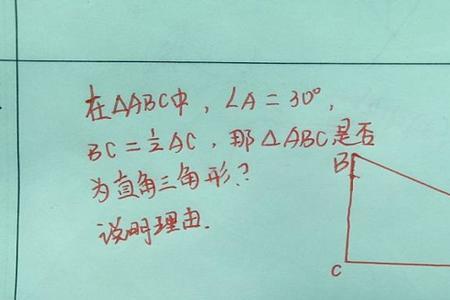 在△ABC中，∠A=30°，
BC=½AC，那△ABC是否
为直角三角形？
说明理由.
B
C